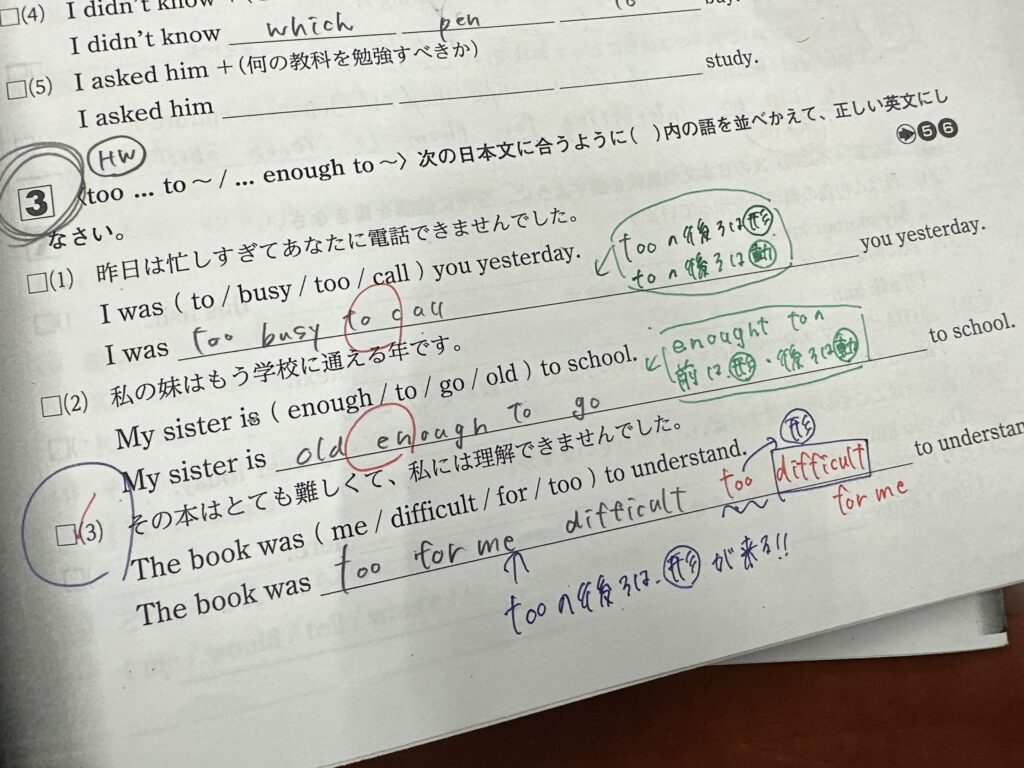 □(4) I didn't know
I didn't know which pen to buy.
□(5) I asked him＋(何の教科を勉強すべきか)
I asked him study.
HW
3 〈too … to ～ / … enough to ～〉次の日本文に合うように( )内の語を並べかえて、正しい英文にし
なさい。 ➡❺❻
□(1) 昨日は忙しすぎてあなたに電話できませんでした。
I was ( to / busy / too / call ) you yesterday.
I was too busy to call you yesterday.
tooの後ろは形
toの後ろは動
□(2) 私の妹はもう学校に通える年です。
My sister is ( enough / to / go / old ) to school.
My sister is old enough to go to school.
enought toの
前は形・後ろは動
□(3) その本はとても難しくて、私には理解できませんでした。
The book was ( me / difficult / for / too ) to understand.
The book was too for me difficult to understan
形
too difficult
for me
tooの後ろは、形が来る!!